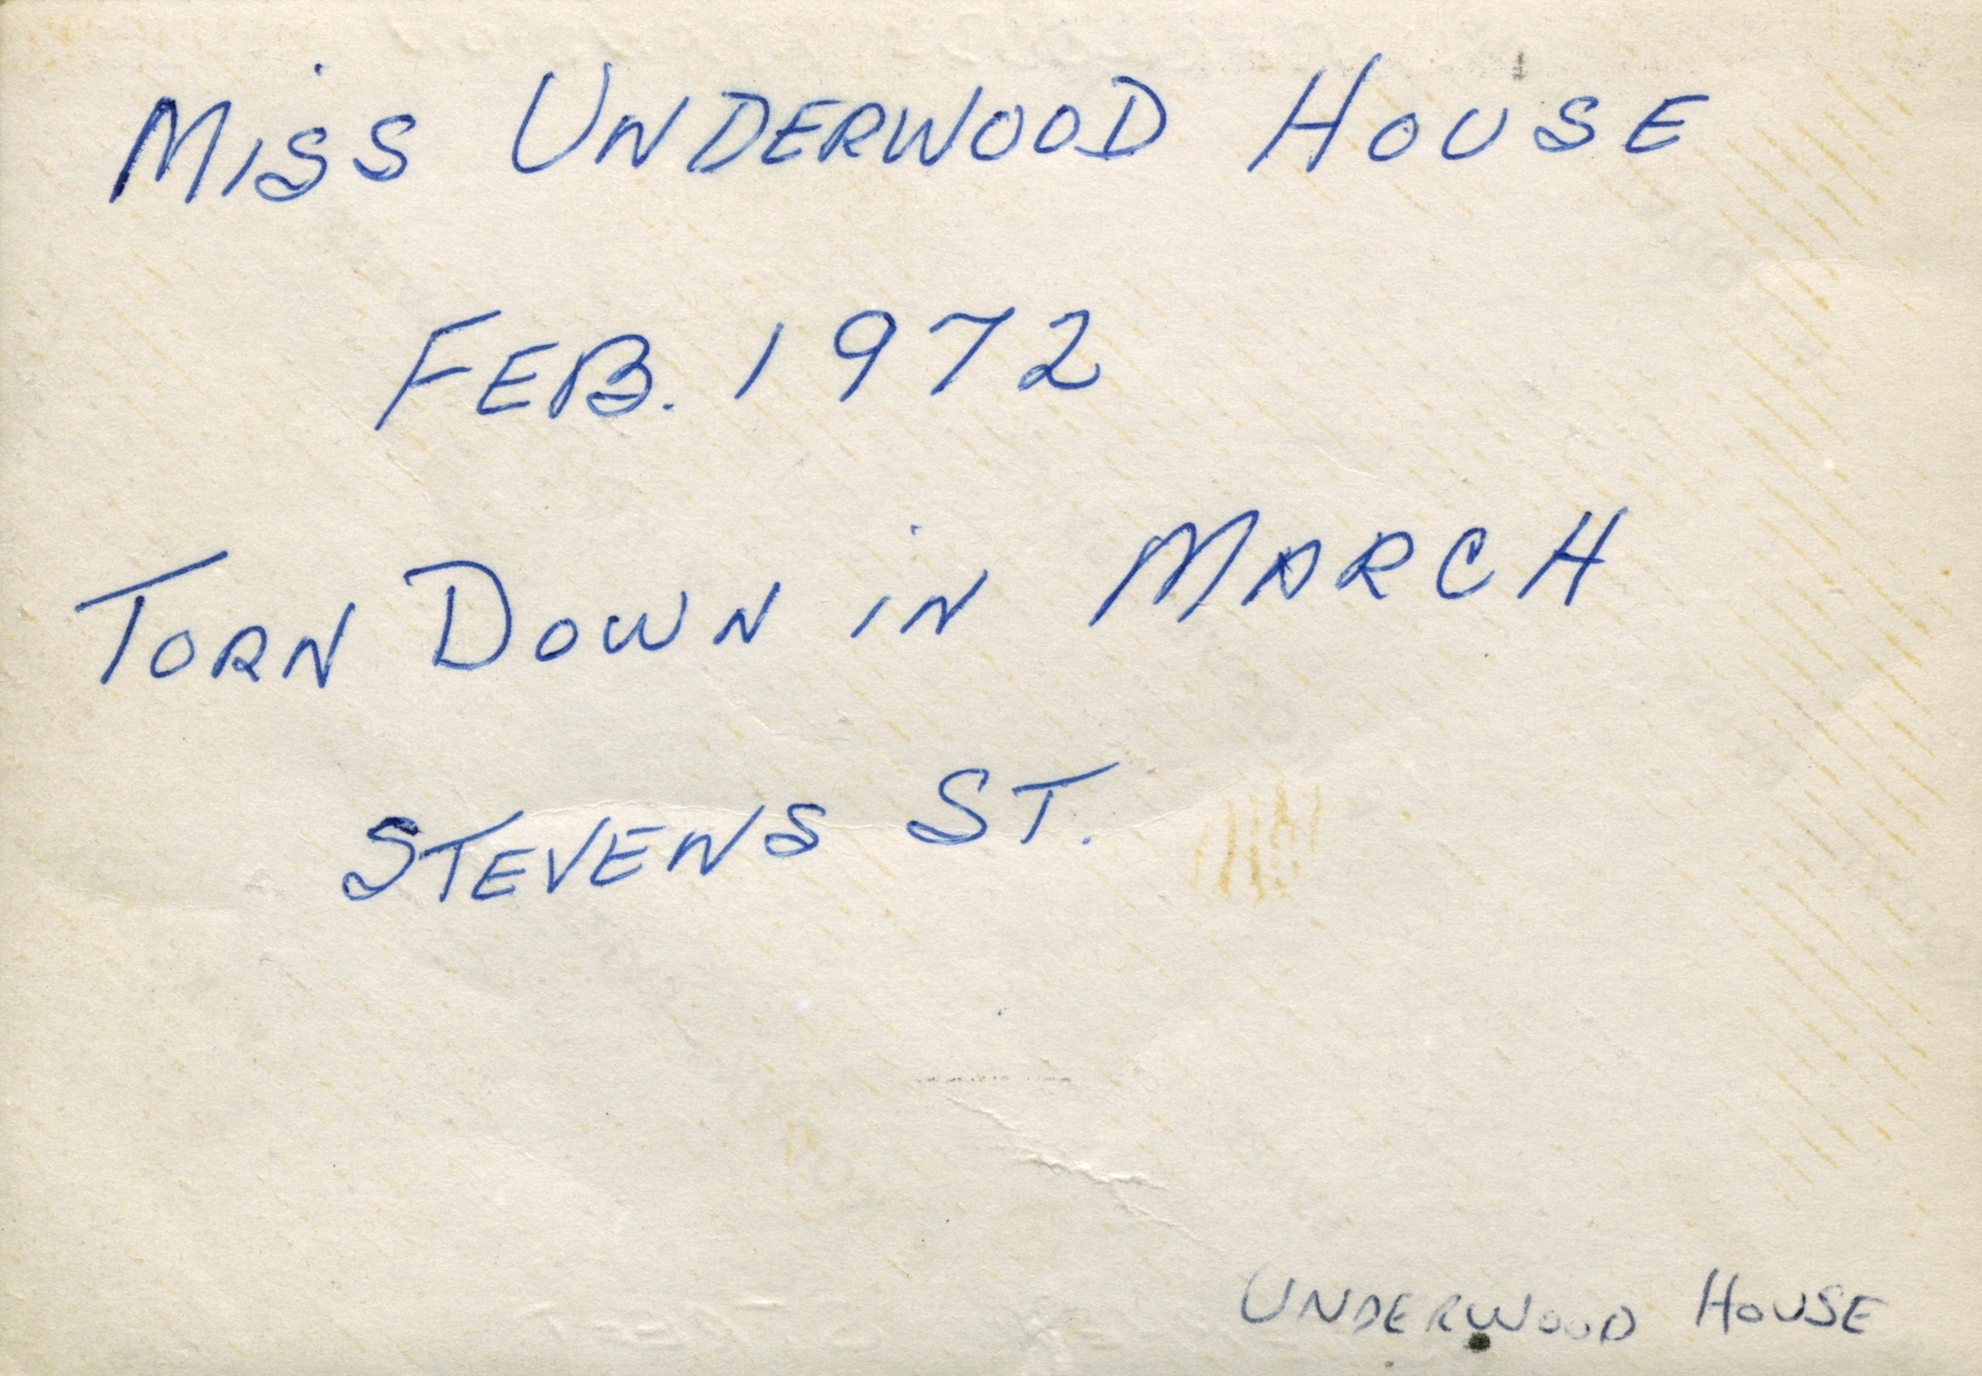 MiSS UNDERWOOD HOUSE
FEB. 1972
TORN DOWN iN MARCH
STEVENS ST.
UNDERWOOD HOUSE